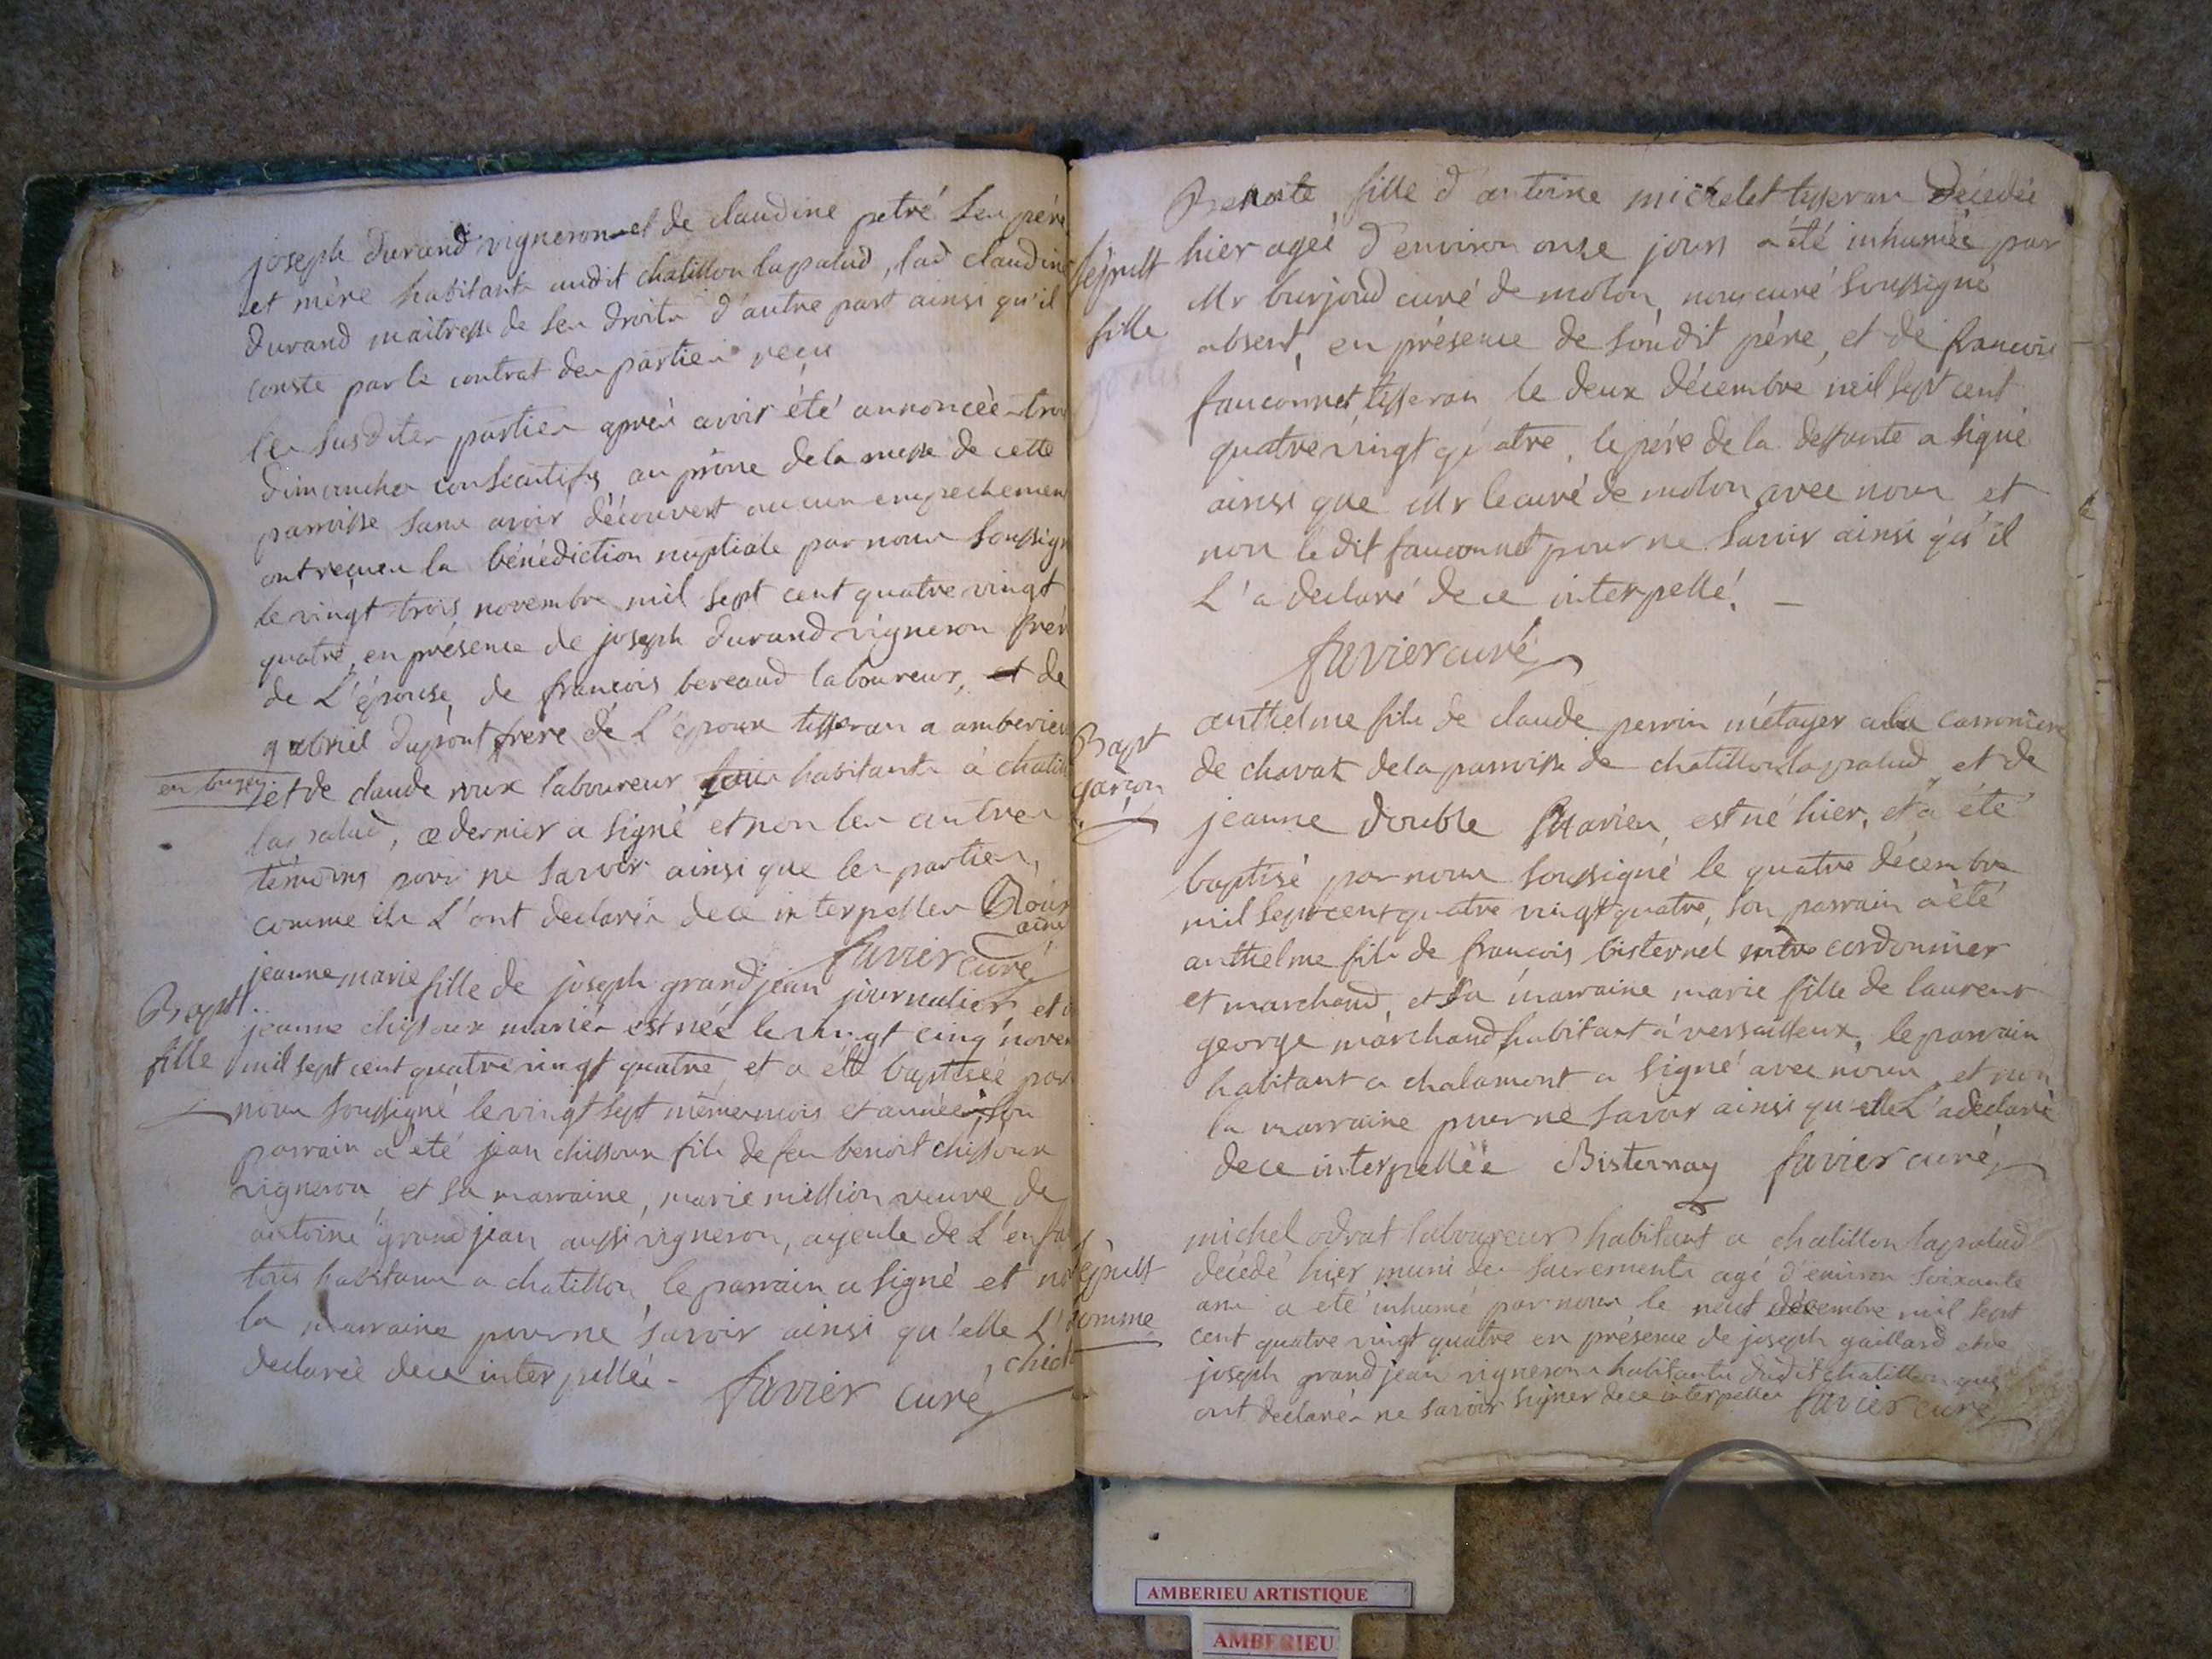 joseph durand vigneron et de claudine petré ses père
et mère habitants audit chatillon lapalud, lad claudine
durand maitresse de ses droits d'autre part ainsi qu'il
conste par le contrat des parties reçu
les susdites parties après avoir été annoncées trois
dimanches consecutifs au prône de la messe de cette
parroisse sans avoir découvert aucun empechement
ont reçues la bénédiction nuptiale par nous soussigné
le vingt trois novembre mil sept cent quatre vingt
quatre, en présence de joseph durand vigneron frère
de L'épouse, de françois bereaud laboureur, et de
gabriel dupont frere de L'epoux tisseran a amberieu
en bugey
et de claude roux laboureur habitants à chatillon
lapalud, ce dernier a signé et non les autres
témoins pour ne savoir ainsi que les parties,
comme ils L'ont declarés de ce interpellés Roux
ainé
favier curé
Bapt
fille
jeanne marie fille de joseph grandjean journalier, et de
jeanne chissoux mariés est née le vingt cinq novem
mil sept cent quatre vingt quatre et a été baptisée par
nous soussigné le vingt sept même mois et année, son
parrain a eté jean chissoux fils de feu benoit chissoux
vigneron, et sa marraine, marie million veuve de
antoine grandjean aussi vigneron, ayeule de L'enfa
tous habitans a chatillon, le parrain a signé et non
la marraine pour ne savoir ainsi qu'elle L'
declarée de ce interpellée -
favier curé
Sépult
fille
Benoite fille d'antoine michelet tisseran décedée
hier ageé d'environ onse jours a été inhumée par
Mr burjoud curé de molon, nous curé soussigné
absent, en présence de sondit père, et de francois
fauconnet tisseran le deux décembre mil sept cent
quatre vingt quatre, le père de la deffunte a signé
ainsi que Mr le curé de molon avec nous et
non le dit fauconnet pour ne savoir ainsi qu'il
L'a declaré de ce interpellé. —
favier curé
Bapt
garçon
anthelme fils de claude perrin métager a la carronière
de chavat de la parroisse de chatillon lapalud, et de
jeanne double mariés, est né hier, et a été
baptisé par nous soussigné le quatre décembre
mil sept cent quatre vingt quatre, son parrain a été
anthelme fils de francois bisternel cordonnier
et marchand et sa marraine marie fille de laurent
george marchand habitant a versailleux, le parrain
habitant a chalamont a signé avec nous, et non
la marraine pour ne savoir ainsi qu'elle L'a declaré
de ce interpellée Bisternay favier curé
Sépult
homme
michel odrat laboureur habitant a chatillon lapalud
décédé hier muni des sacrements agé d'environ soixante
ans a eté inhumé par nous le neuf décembre mil sept
cent quatre vingt quatre en présence de joseph gaillard et de
joseph grandjean vignerons habitants dudit chatillon qui
ont declarés ne savoir signer de ce interpellés favier curé
AMBERIEU ARTISTIQUE
AMBERIEU